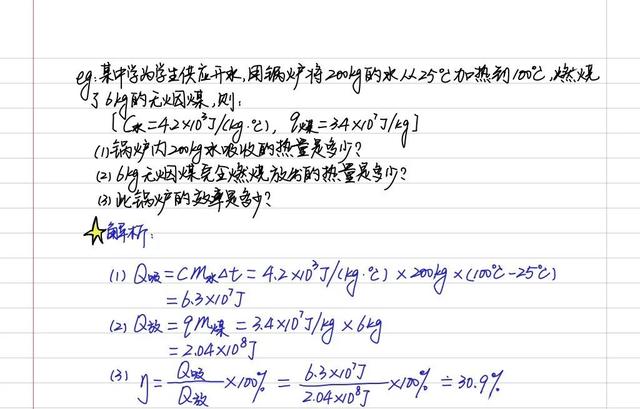 eg:某中学为学生供应开水,用锅炉将200kg的水从25℃加热到100℃,燃烧
了6kg的无烟煤,则:
[C水=4.2×10³J/(kg·℃), q煤=3.4×10⁷J/kg]
(1)锅炉内200kg水吸收的热量是多少?
(2)6kg无烟煤完全燃烧放出的热量是多少?
(3)此锅炉的效率是多少?
解析:
(1) Q吸=Cm水Δt=4.2×10³J/(kg·℃)×200kg×(100℃-25℃)
=6.3×10⁷J
(2) Q放=qm煤=3.4×10⁷J/kg×6kg
=2.04×10⁸J
(3) η=Q吸/Q放×100%=6.3×10⁷J/2.04×10⁸J×100%≑30.9%